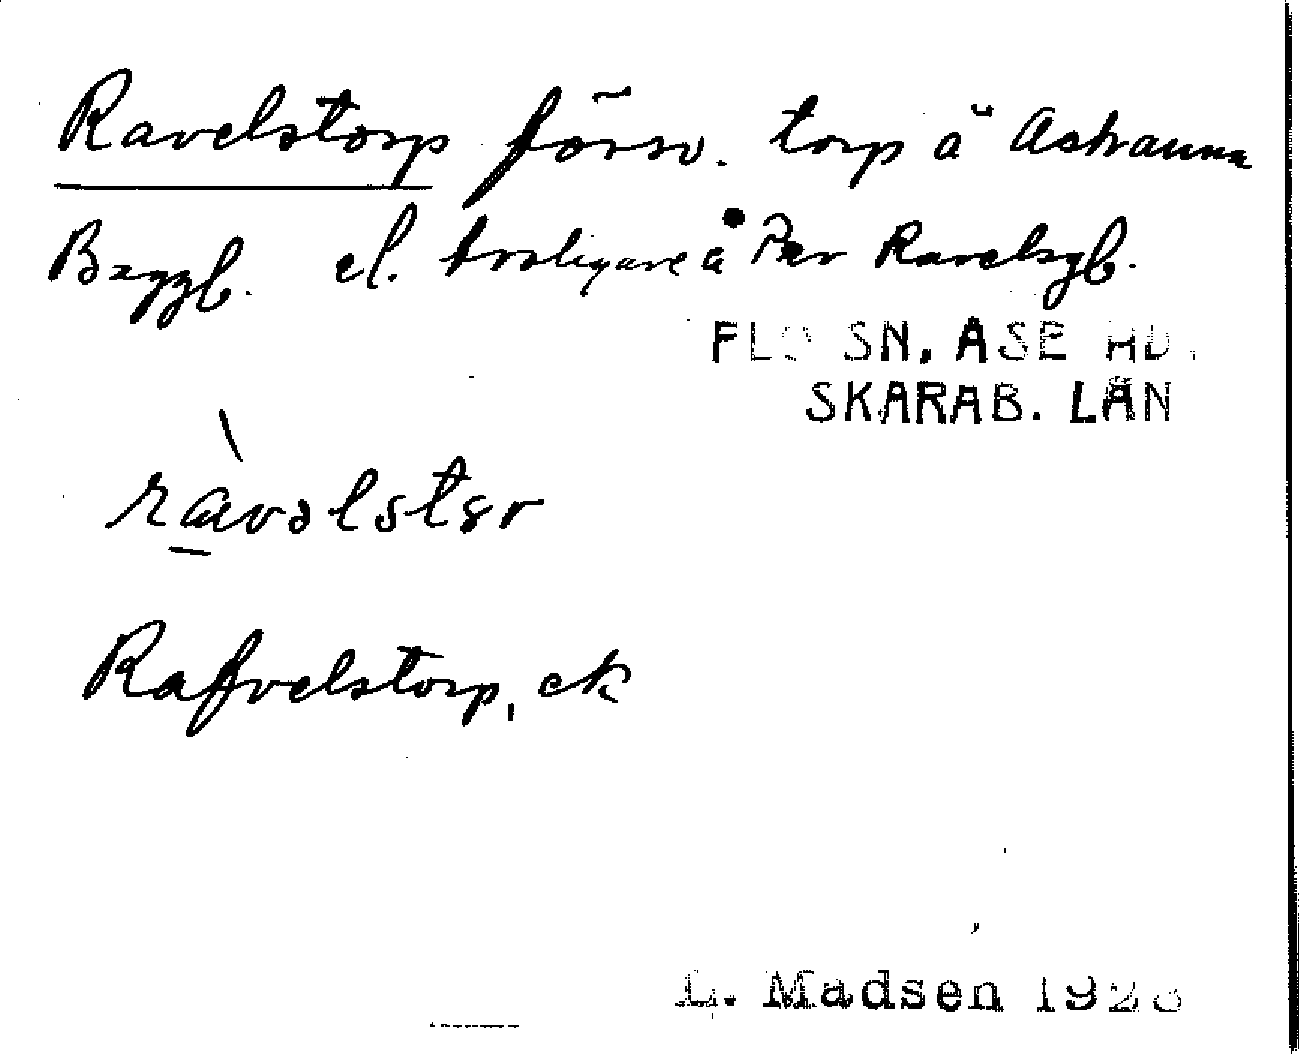 Ravelstorp försv. torp å Ashanna
Baggb. el. troligare å Per Ravelsgb.
FLO SN. ÅSE HD.
SKARAB. LÄN
ràvəlstər
Rafvelstorp, ek
L. Madsen 1923